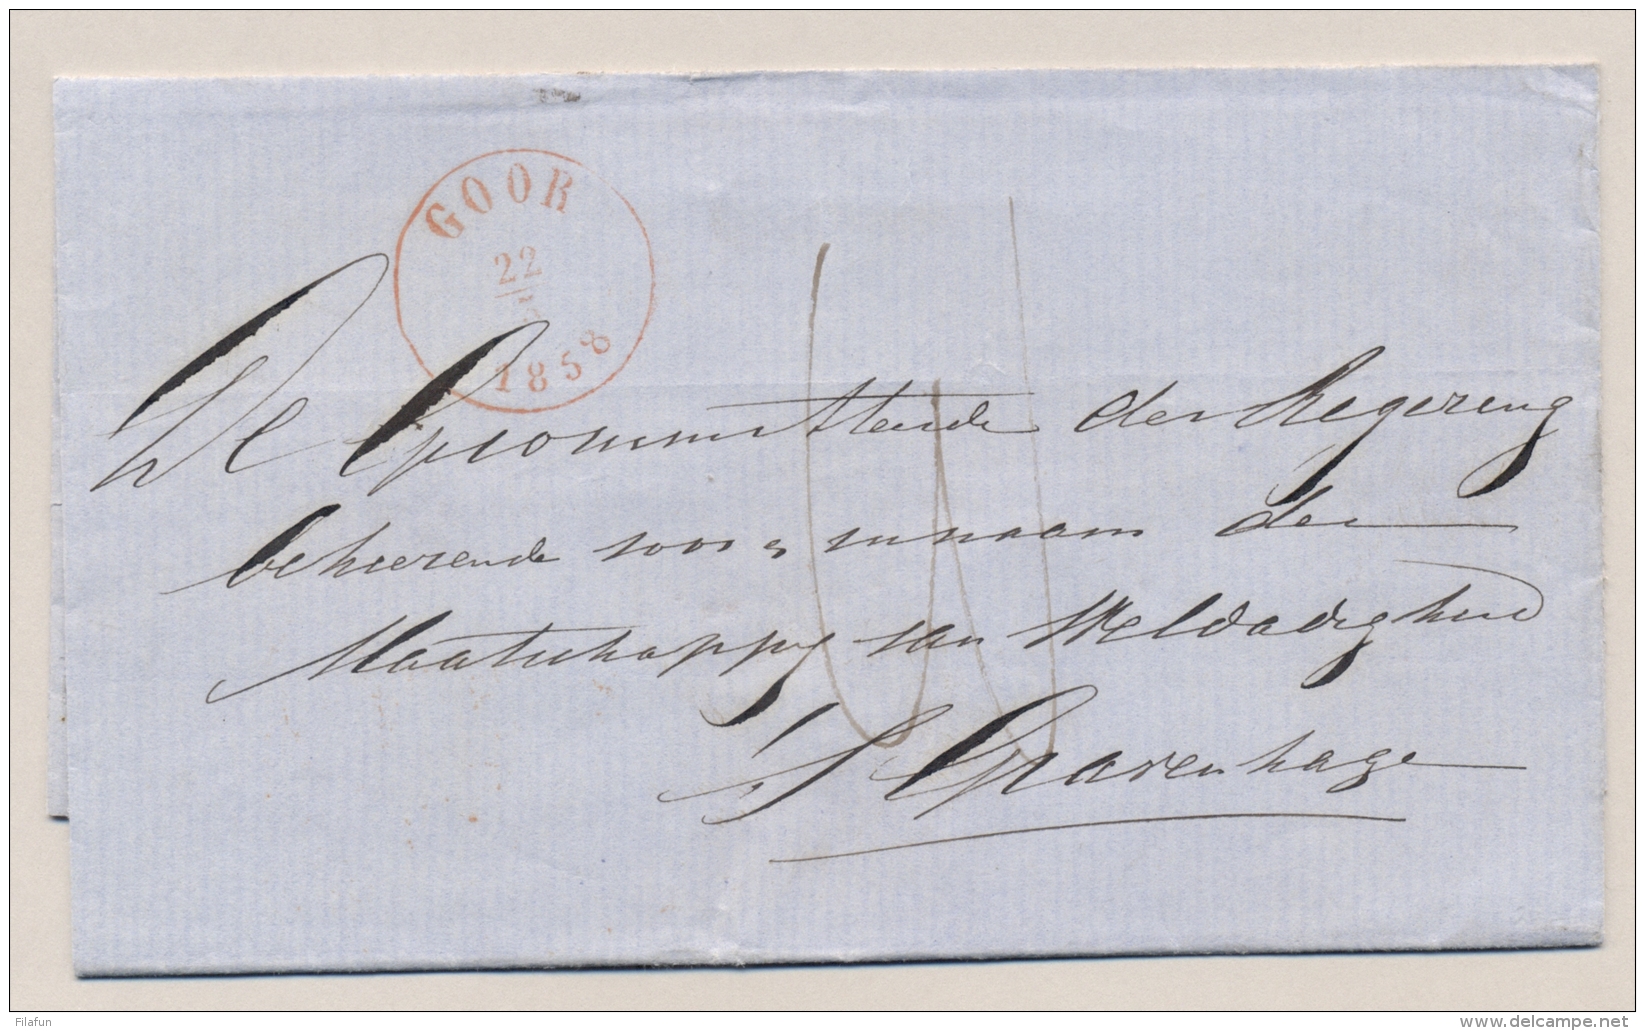 GOOR
22
1858
De Gecommitteerde der Regering
beheerende voor en in naam der
Maatschappy van Weldadigheid
'S Gravenhage
Filafun
www.delcampe.net